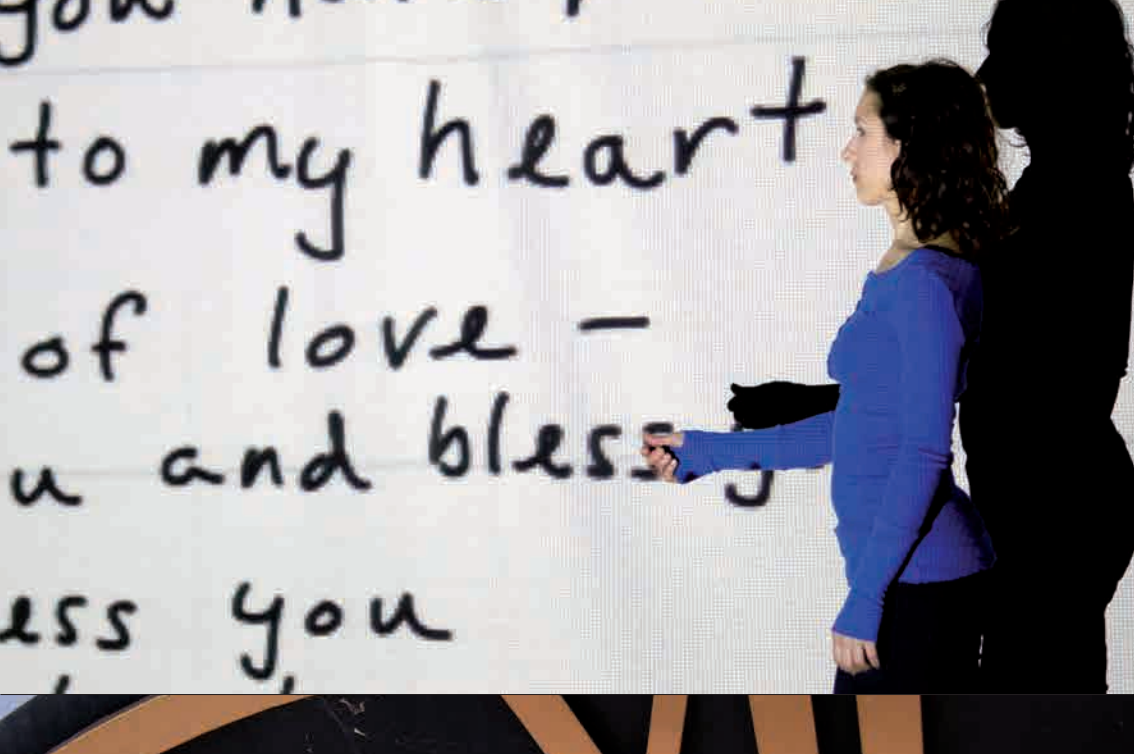 you
to my heart
of love –
u and bless y
ess you